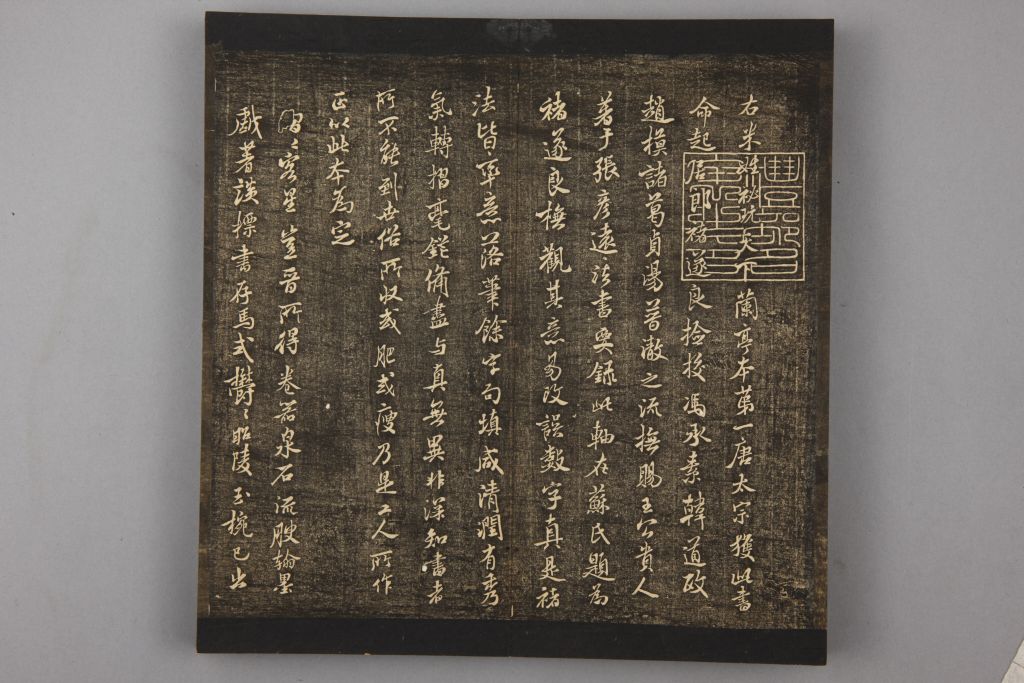 右米姓秘玩天下蘭亭本第一唐太宗獲此書
命起居郎褚遂良捡挍馮承素韓道政
趙模諸葛貞湯普澈之流橅賜王公貴人
著于張彦遠法書要録此軸在蘇氏題為
褚遂良橅觀其意易改誤數字真是褚
法皆率意落筆餘字勾填咸清潤有秀
氣轉摺毫鋩備盡与真無異非深知書者
所不能到世俗所収或肥或瘦乃是工人所作
正以此本為定
客星豈晋所得卷器泉石流腴翰墨
戲著談標書存馬式欝〻昭陵玉椀已出